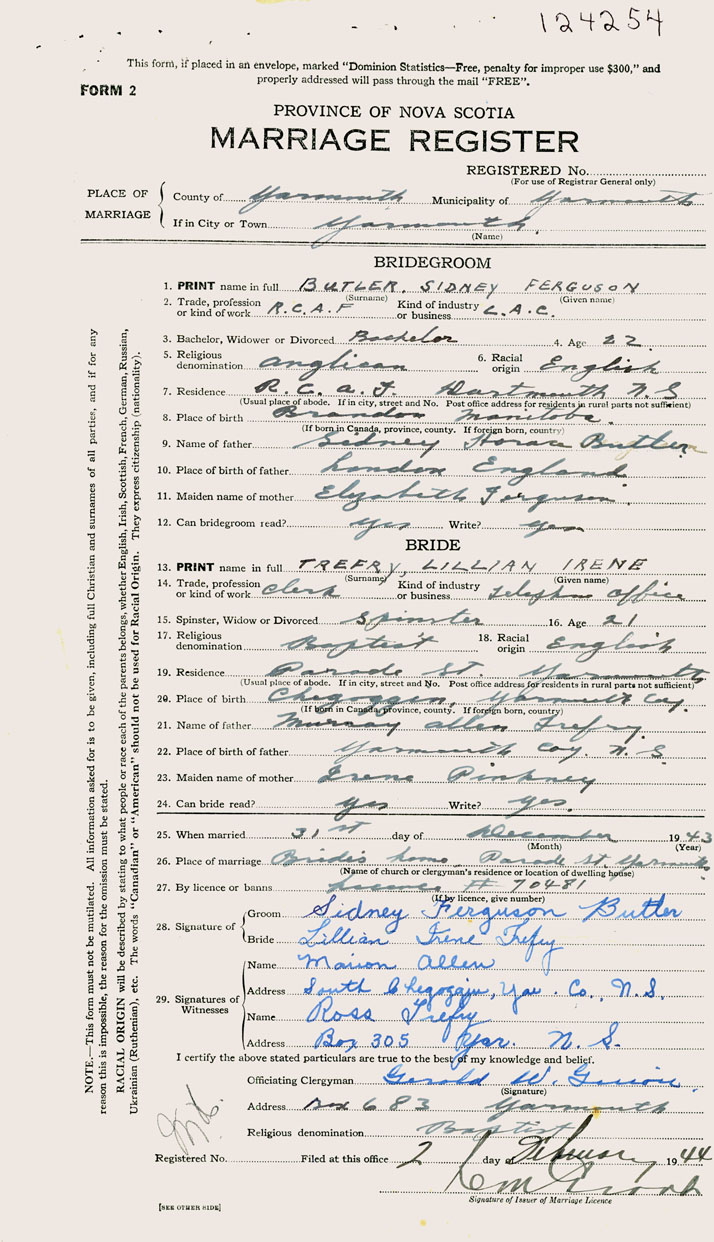 124254
This form, if placed in an envelope, marked "Dominion Statistics—Free, penalty for improper use $300," and
properly addressed will pass through the mail "FREE".
FORM 2
PROVINCE OF NOVA SCOTIA
MARRIAGE REGISTER
REGISTERED No.
(For use of Registrar General only)
PLACE OF MARRIAGE
County of Yarmouth Municipality of Yarmouth
If in City or Town Yarmouth.
(Name)
BRIDEGROOM
1. PRINT name in full BUTLER, SIDNEY FERGUSON
(Surname) (Given name)
2. Trade, profession or kind of work R.C.A.F Kind of industry or business L.A.C.
3. Bachelor, Widower or Divorced Bachelor 4. Age 22
5. Religious denomination Anglican 6. Racial origin English
7. Residence R.C.A.F. Dartmouth N.S
(Usual place of abode. If in city, street and No. Post office address for residents in rural parts not sufficient)
8. Place of birth Brandon Manitoba.
(If born in Canada, province, county. If foreign born, country)
9. Name of father Sidney Horace Butler
10. Place of birth of father London England
11. Maiden name of mother Elizabeth Ferguson.
12. Can bridegroom read? yes Write? yes
BRIDE
13. PRINT name in full TREFRY, LILLIAN IRENE
(Surname) (Given name)
14. Trade, profession or kind of work Clerk Kind of industry or business telephone office
15. Spinster, Widow or Divorced Spinster 16. Age 21
17. Religious denomination Baptist 18. Racial origin English
19. Residence Parade St. Yarmouth
(Usual place of abode. If in city, street and No. Post office address for residents in rural parts not sufficient)
20. Place of birth Chegoggin, Yarmouth Coy.
(If born in Canada, province, county. If foreign born, country)
21. Name of father Murray Allen Trefry
22. Place of birth of father Yarmouth Coy. N.S.
23. Maiden name of mother Irene Pinkney
24. Can bride read? yes Write? yes.
25. When married 31st day of December 1943
(Month) (Year)
26. Place of marriage Bride's home Parade St. Yarmouth
(Name of church or clergyman's residence or location of dwelling house)
27. By licence or banns licence # 70481
(If by licence, give number)
28. Signature of
Groom Sidney Ferguson Butler
Bride Lillian Irene Trefry
29. Signatures of Witnesses
Name Marion Allen
Address South Chegoggin, Yar. Co., N.S.
Name Ross Trefry
Address Box 305 Yar. N.S.
I certify the above stated particulars are true to the best of my knowledge and belief.
Officiating Clergyman Gerald W.
(Signature)
Address Box 683 Yarmouth
Religious denomination Baptist
Registered No. Filed at this office 2 day of February 1944
Signature of Issuer of Marriage Licence
[SEE OTHER SIDE]
NOTE.—This form must not be mutilated. All information asked for is to be given, including full Christian and surnames of all parties, and if for any
reason this is impossible, the reason for the omission must be stated.
RACIAL ORIGIN will be described by stating to what people or race each of the parents belongs, whether English, Irish, Scottish, French, German, Russian,
Ukrainian (Ruthenian), etc. The words "Canadian" or "American" should not be used for Racial Origin. They express citizenship (nationality).